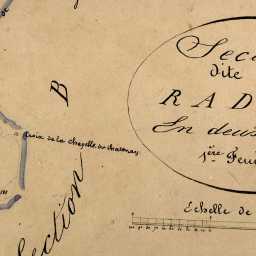 Sec
dite
RAD
En deux
1ère Feui
Echelle de
B
Croix de la Chapelle de
Section